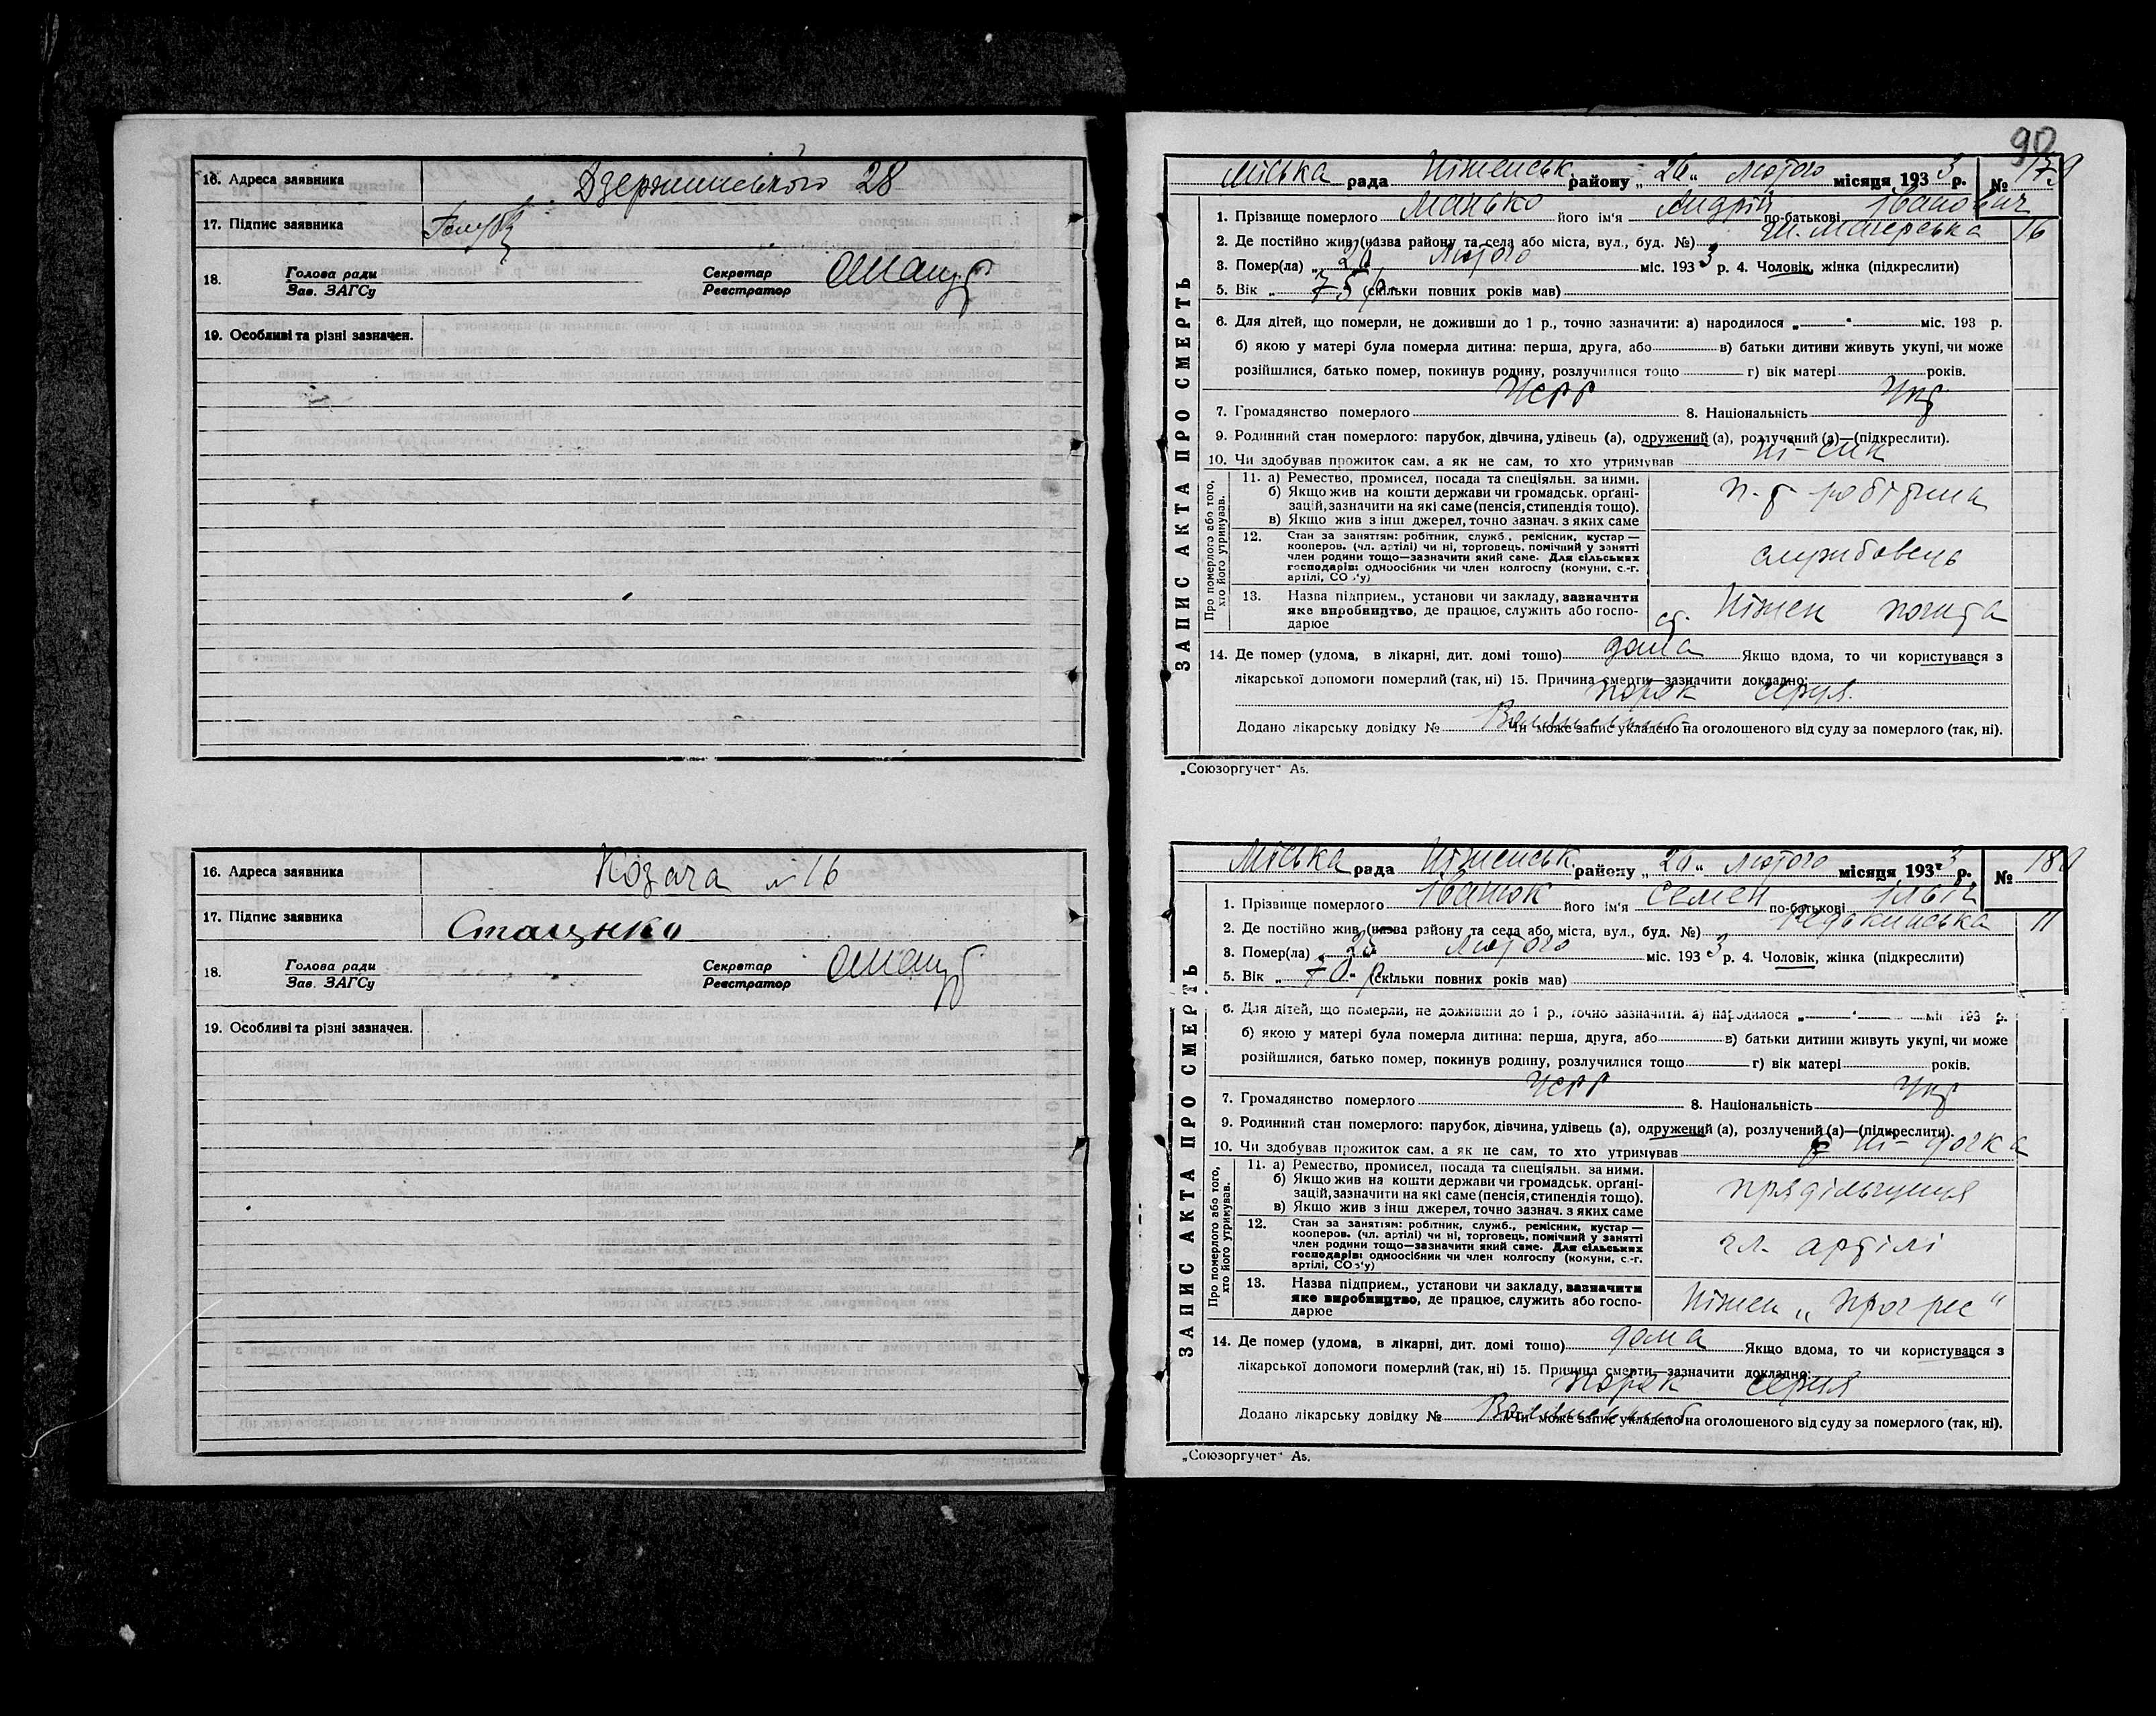 16. Адреса заявника Дзержинського 28
17. Підпис заявника
18. Голова ради
Зав. ЗАГСу
Секретар
Реєстратор
19. Особливі та різні зазначен.
16. Адреса заявника Козача № 16
17. Підпис заявника Стаценко
18. Голова ради
Зав. ЗАГСу
Секретар
Реєстратор
19. Особливі та різні зазначен.
90
Міська рада Ніженськ. району „26“ лютого місяця 1933 р. № 179
ЗАПИС АКТА ПРО СМЕРТЬ
1. Прізвище померлого Манько його ім'я Андрій по-батькові Іванович
2. Де постійно жив (назва району та села або міста, вул., буд. №) 16
3. Помер(ла) „26 лютого міс. 1933 р. 4. Чоловік, жінка (підкреслити)
5. Вік „ 75 р. (скільки повних років мав)
6. Для дітей, що померли, не доживши до 1 р., точно зазначити: а) народилося „ “ міс. 193 р.
б) якою у матері була померла дитина: перша, друга, або в) батьки дитини живуть укупі, чи може
розійшлися, батько помер, покинув родину, розлучилися тощо г) вік матері років.
7. Громадянство померлого УСРР 8. Національність Укр
9. Родинний стан померлого: парубок, дівчина, удівець (а), одружений (а), розлучений (а)—(підкреслити).
10. Чи здобував прожиток сам, а як не сам, то хто утримував ні - син
Про померлого або того, хто його утримував.
11. а) Ремество, промисел, посада та спеціяльн. за ними.
б) Якщо жив на кошти держави чи громадськ. орґані-
зацій, зазначити на які саме (пенсія, стипендія тощо).
в) Якщо жив з інш джерел, точно зазнач. з яких саме
12. Стан за заняттям: робітник, служб., ремісник, кустар —
кооперов. (чл. артілі) чи ні, торговець, помічний у занятті
член родини тощо—зазначити який саме. Для сільських
господарів: одноосібник чи член колгоспу (комуни, с.-г.
артілі, СОЗ'у)
службовець
13. Назва підприєм., установи чи закладу, зазначити
яке виробництво, де працює, служить або госпо-
дарює
Ніжен пошта
14. Де помер (удома, в лікарні, дит. домі тощо) дома Якщо вдома, то чи користувався з
лікарської допомоги померлий (так, ні) 15. Причина смерти—зазначити докладно:
порок серця
Додано лікарську довідку № Чи може запис укладено на оголошеного від суду за померлого (так, ні).
„Союзоргучет“ А5.
Міська рада Ніженськ. району „26“ лютого місяця 1933 р. № 180
ЗАПИС АКТА ПРО СМЕРТЬ
1. Прізвище померлого Іванюк його ім'я Семен по-батькові Ілліч
2. Де постійно жив (назва району та села або міста, вул., буд. №) Редькинська 11
3. Помер(ла) „25 лютого міс. 1933 р. 4. Чоловік, жінка (підкреслити)
5. Вік „ 70 р. (скільки повних років мав)
6. Для дітей, що померли, не доживши до 1 р., точно зазначити: а) народилося „ “ міс 193 р.
б) якою у матері була померла дитина: перша, друга, або в) батьки дитини живуть укупі, чи може
розійшлися, батько помер, покинув родину, розлучилися тощо г) вік матері років.
7. Громадянство померлого УСРР 8. Національність Укр
9. Родинний стан померлого: парубок, дівчина, удівець (а), одружений (а), розлучений (а)—(підкреслити).
10. Чи здобував прожиток сам, а як не сам, то хто утримував ні - дочка
Про померлого або того, хто його утримував.
11. а) Ремество, промисел, посада та спеціяльн. за ними.
б) Якщо жив на кошти держави чи громадськ. орґані-
зацій, зазначити на які саме (пенсія, стипендія тощо).
в) Якщо жив з інш джерел, точно зазнач. з яких саме
прядільщиця
12. Стан за заняттям: робітник, служб., ремісник, кустар —
кооперов. (чл. артілі) чи ні, торговець, помічний у занятті
член родини тощо—зазначити який саме. Для сільських
господарів: одноосібник чи член колгоспу (комуни, с.-г.
артілі, СОЗ'у)
чл. артілі
13. Назва підприєм., установи чи закладу, зазначити
яке виробництво, де працює, служить або госпо-
дарює
Ніжен „Прогрес“
14. Де помер (удома, в лікарні, дит. домі тощо) дома Якщо вдома, то чи користувався з
лікарської допомоги померлий (так, ні) 15. Причина смерти—зазначити докладно:
порок серця
Додано лікарську довідку № Чи може запис укладено на оголошеного від суду за померлого (так, ні).
„Союзоргучет“ А5.